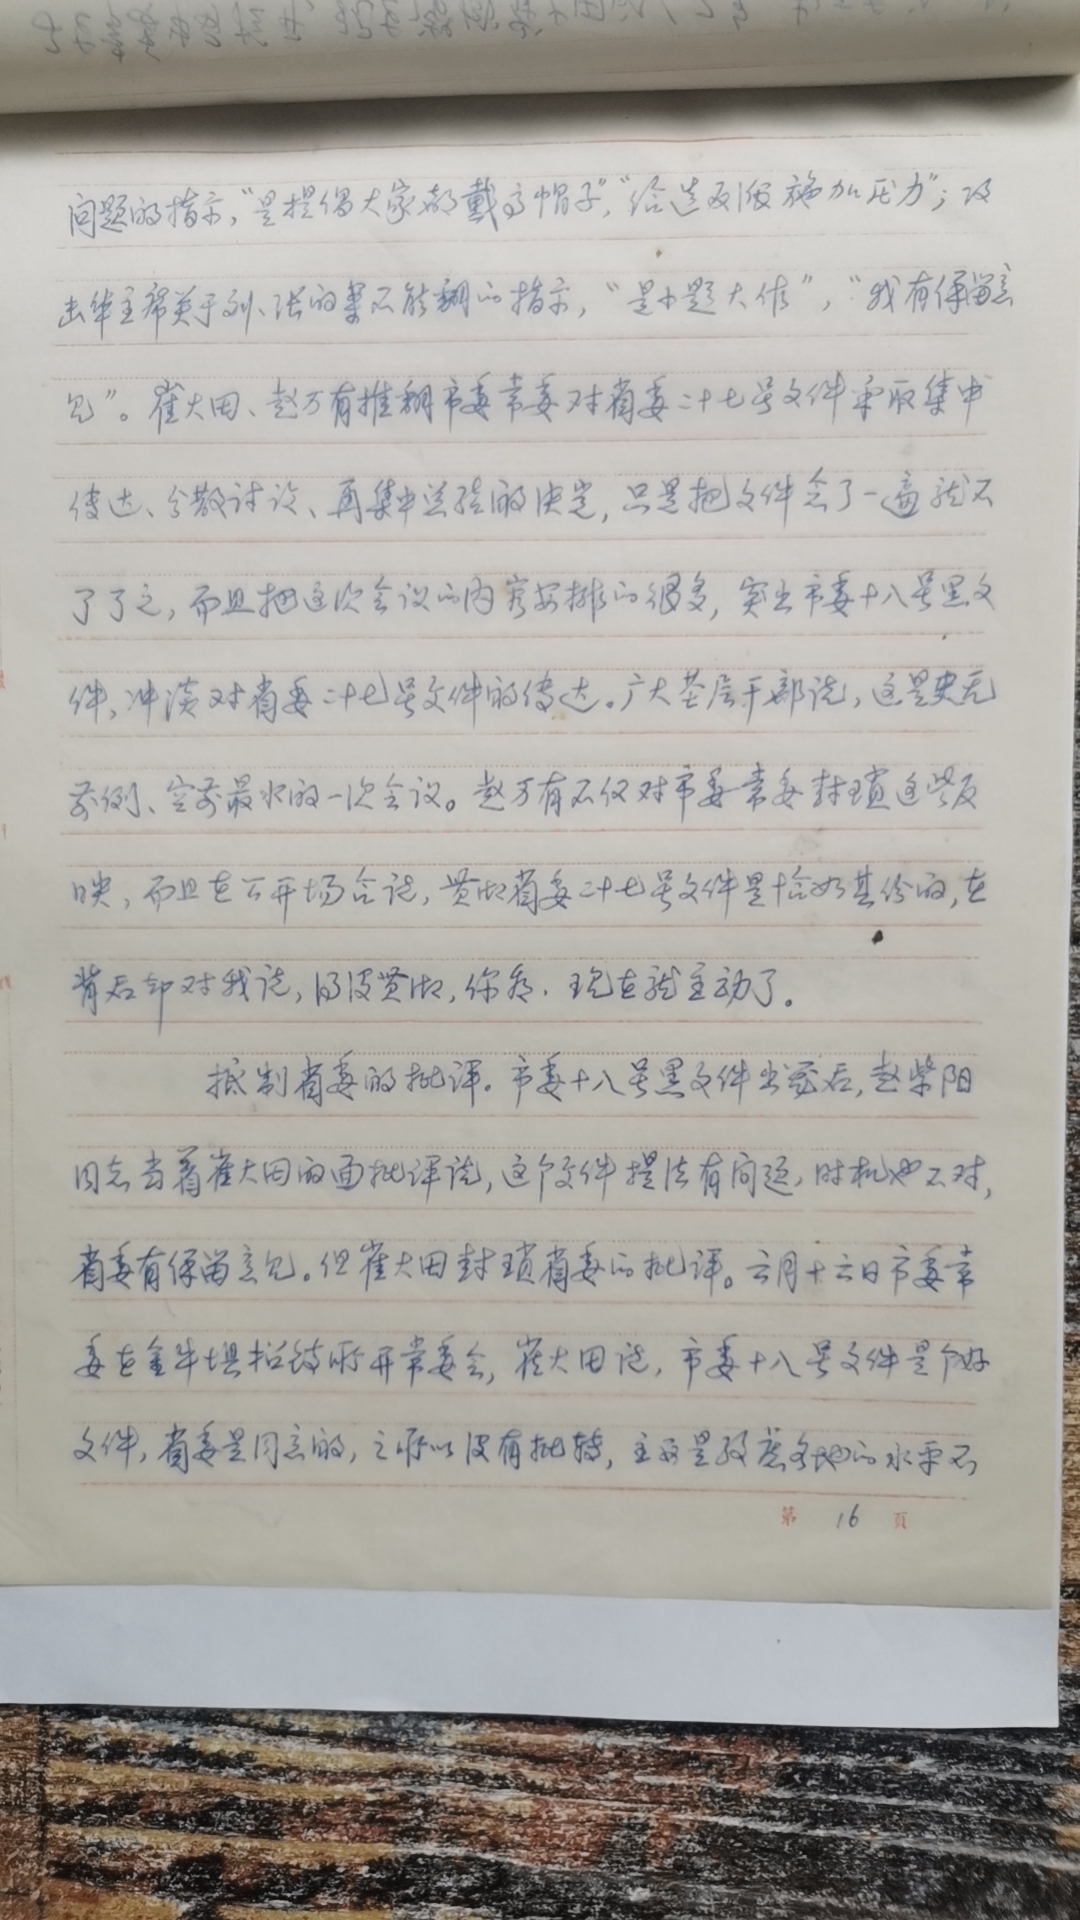 问题的指示，“是提倡大家都戴高帽子”，“给造反派施加压力”；攻
击华主席关于刘、张的案不能翻的指示，“是小题大作”，“我有保留意
见”。崔大田、赵万有推翻市委常委对省委二十七号文件采取集中
传达、分散讨论、再集中总结的决定，只是把文件念了一遍就不
了了之，而且把这次会议的内容安排的很多，突出市委十八号黑文
件，冲淡对省委二十七号文件的传达。广大基层干部说，这是史无
前例、空前最水的一次会议。赵万有不仅对市委常委封锁这些反
映，而且在公开场合说，贯彻省委二十七号文件是恰如其份的，在
背后却对我说，河没贯彻，你看，现在就主动了。
抵制省委的批评。市委十八号黑文件出笼后，赵紫阳
同志当着崔大田的面批评说，这个文件提法有问题，时机也不对，
省委有保留意见。但崔大田封锁省委的批评。六月十六日市委常
委在金牛坝招待所开常委会，崔大田说，市委十八号文件是个好
文件，省委是同意的，之所以没有批转，主要是考虑各地的水平不
第 16 頁